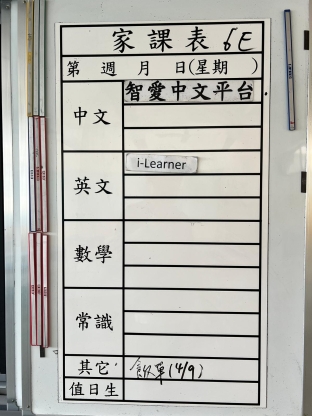 家課表 6E
第 週 月 日(星期 )
中文 智愛中文平台
英文 i-Learner
數學
常識
其它 飯單(4/9)
值日生